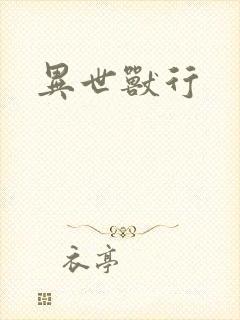 異世獸行
衣亭